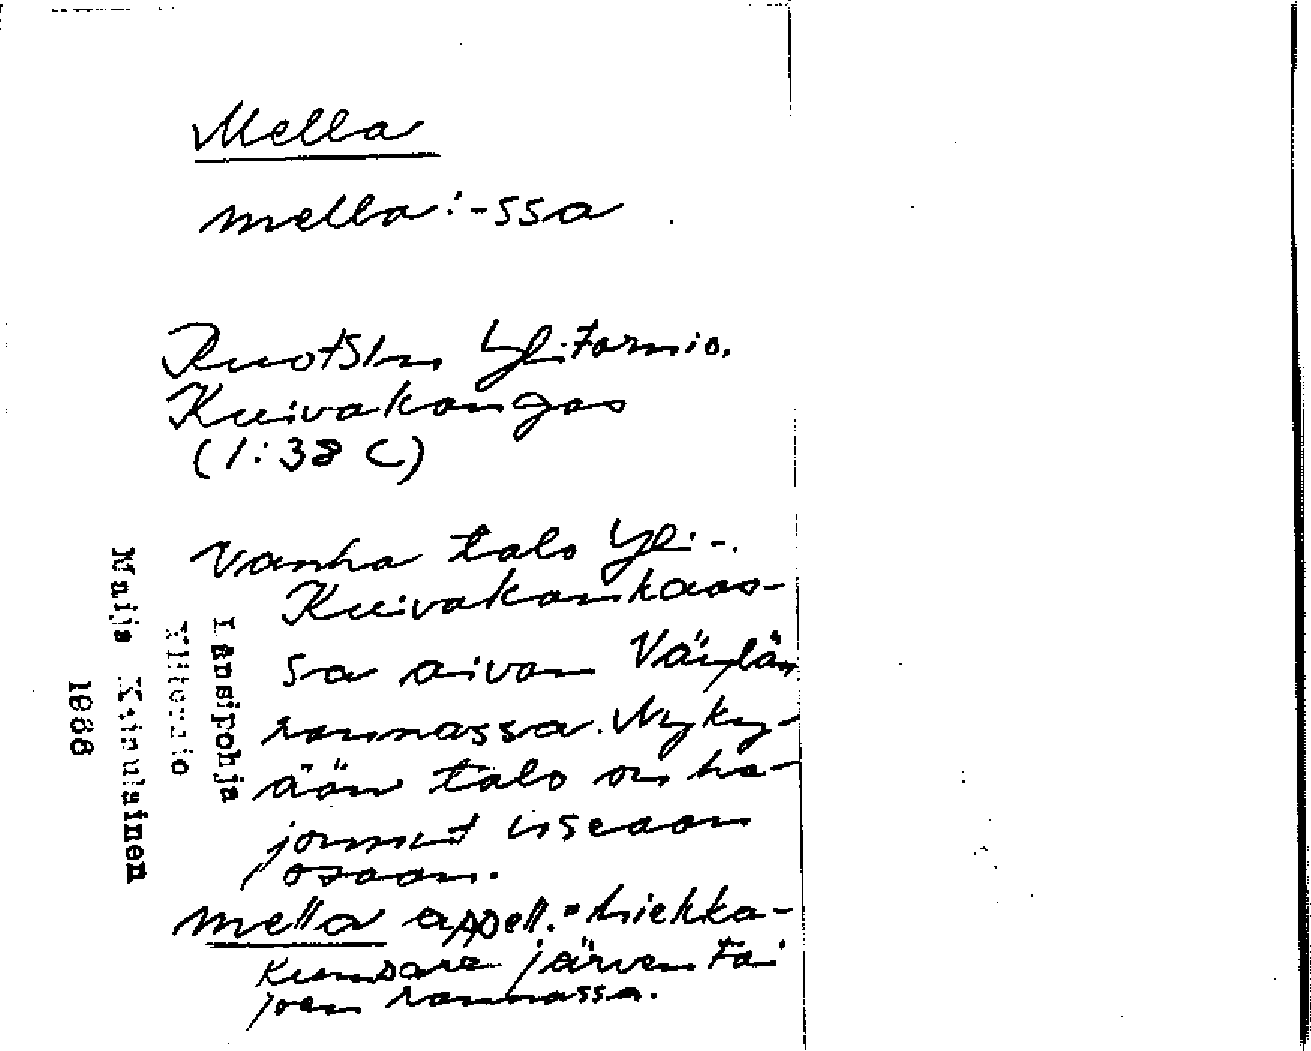 Mella
mella:-ssa
Ruotsin Ylitornio.
Kuivakangas
(1:38 C)
Vanha talo Yli-
Kuivakankaas-
sa aivan Väylän
rannassa. Nyky-
ään talo on ha-
jonnut useaan
osaan.
mella appell. = hiekka-
kumpare järven tai
joen rannassa.
Länsipohja
Ylitornio
Maija Kainulainen
1968